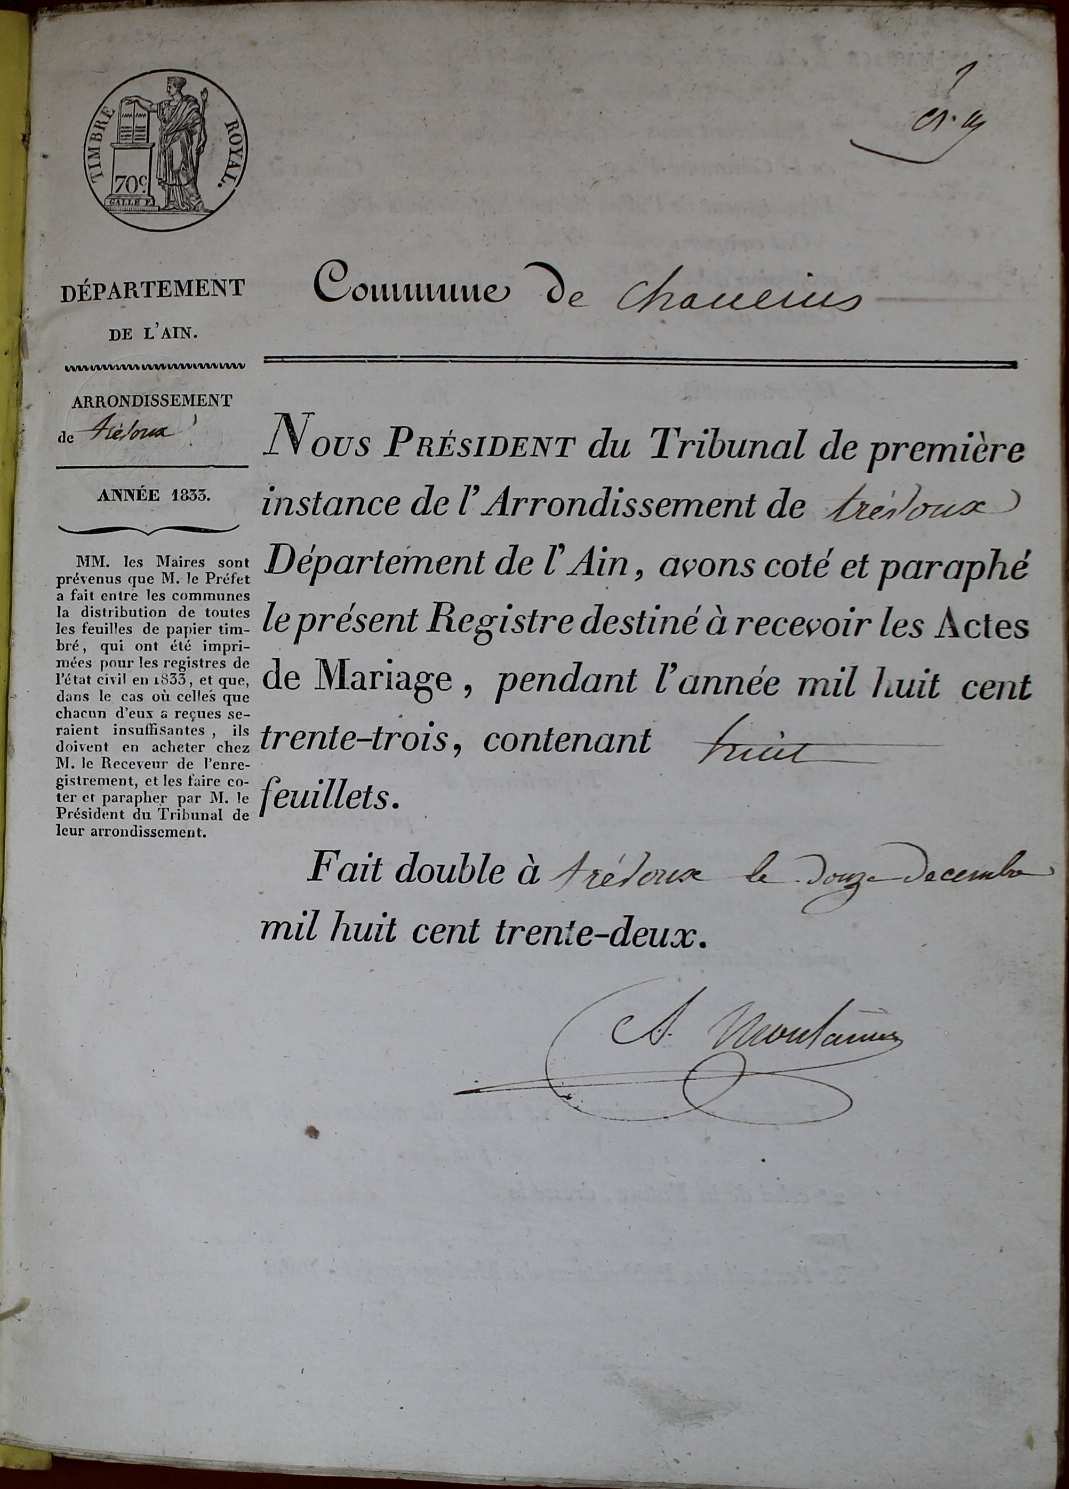 TIMBRE ROYAL.
70c.
DÉPARTEMENT
DE L'AIN.
ARRONDISSEMENT
de trévoux
ANNÉE 1833.
MM. les Maires sont
prévenus que M. le Préfet
a fait entre les communes
la distribution de toutes
les feuilles de papier tim-
bré, qui ont été impri-
mées pour les registres de
l'état civil en 1833, et que,
dans le cas où celles que
chacun d'eux a reçues se-
raient insuffisantes, ils
doivent en acheter chez
M. le Receveur de l'enre-
gistrement, et les faire co-
ter et parapher par M. le
Président du Tribunal de
leur arrondissement.
Commune de chaneins
NOUS PRÉSIDENT du Tribunal de première
instance de l'Arrondissement de trévoux
Département de l'Ain, avons coté et paraphé
le présent Registre destiné à recevoir les Actes
de Mariage, pendant l'année mil huit cent
trente-trois, contenant huit
feuillets.
Fait double à trévoux le douze decembre
mil huit cent trente-deux.